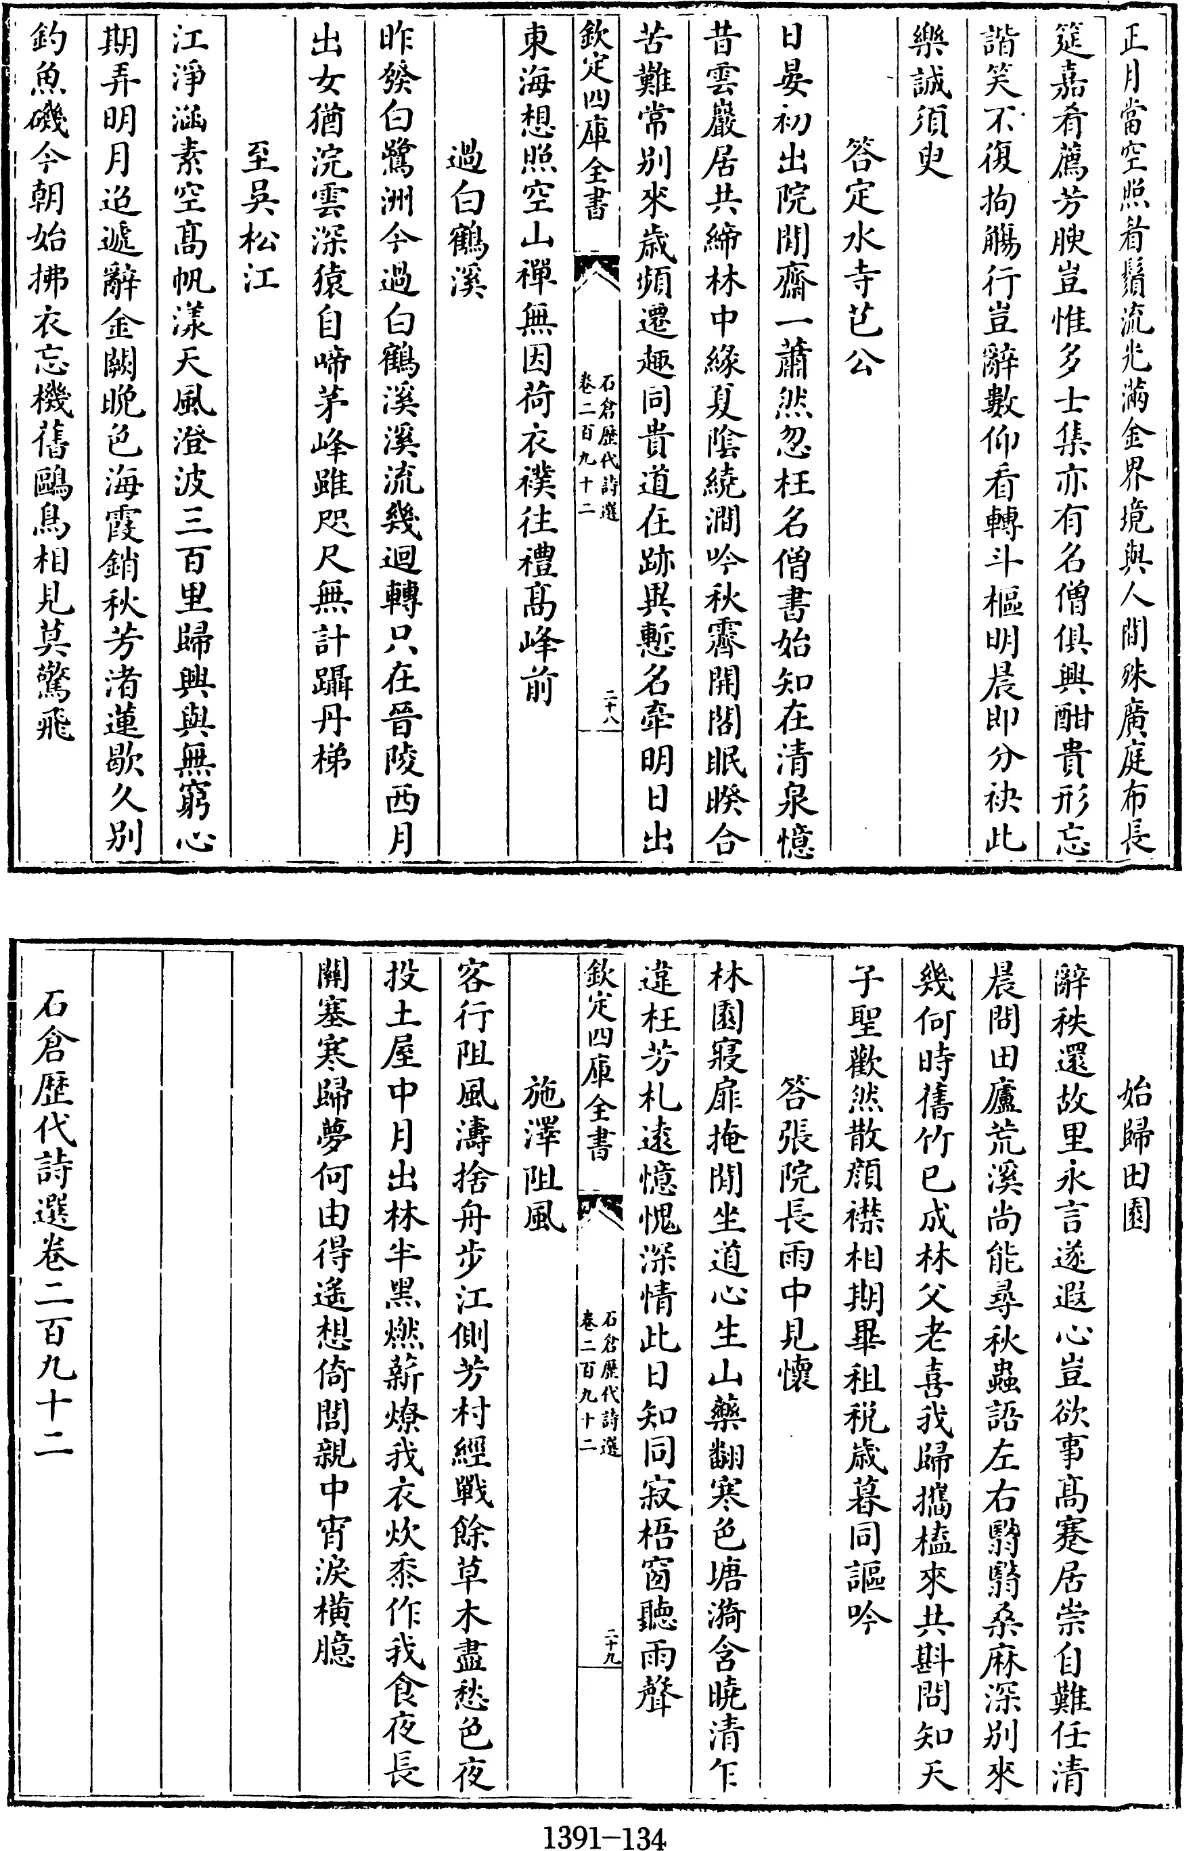 正月當空照着鬚流光滿金界境與人間殊廣庭布長
筵嘉肴薦芳腴豈惟多士集亦有名僧俱興酣貴形忘
諧笑不復拘觴行豈辭數仰看轉斗樞明晨即分袂此
樂誠須臾
答定水寺芑公
日晏初出院閒齋一蕭然忽枉名僧書始知在清泉憶
昔雲巖居共締林中緣夏陰繞澗吟秋霽開閣眠暌合
苦難常別來歲頻遷趣同貴道在跡異慙名牽明日出
欽定四庫全書
石倉歷代詩選
卷二百九十二
二十八
東海想照空山禪無因荷衣襆往禮高峰前
過白鶴溪
昨發白鷺洲今過白鶴溪溪流幾迴轉只在晉陵西月
出女猶浣雲深猿自啼茅峰雖咫尺無計躡丹梯
至吳松江
江淨涵素空高帆漾天風澄波三百里歸興與無窮心
期弄明月迢遞辭金闕晚色海霞銷秋芳渚蓮歇久別
釣魚磯今朝始拂衣忘機舊鷗鳥相見莫驚飛
始歸田園
辭秩還故里永言遂遐心豈欲事高蹇居崇自難任清
晨問田廬荒溪尚能尋秋蟲語左右翳翳桑麻深別來
幾何時舊竹已成林父老喜我歸攜榼來共斟問知天
子聖歡然散顏襟相期畢租稅歲暮同謳吟
答張院長雨中見懷
林園寢扉掩閒坐道心生山藥翻寒色塘漪含曉清乍
違枉芳札遠憶愧深情此日知同寂梧窗聽雨聲
欽定四庫全書
石倉歷代詩選
卷二百九十二
二十九
施澤阻風
客行阻風濤捨舟步江側芳村經戰餘草木盡愁色夜
投土屋中月出林半黑燃薪燎我衣炊黍作我食夜長
關塞寒歸夢何由得遙想倚閭親中宵淚橫臆
石倉歷代詩選卷二百九十二
1391-134